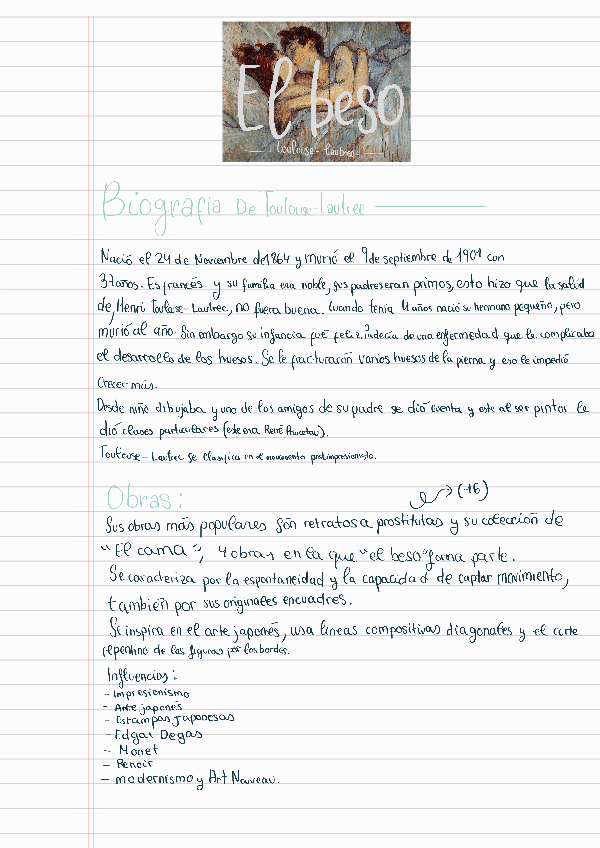 El beso
Toulouse-Lautrec
Biografía De Toulouse-Lautrec
Nació el 24 de Noviembre de 1864 y murió el 9 de septiembre de 1901 con
37 años. Es francés y su familia era noble, sus padres eran primos, esto hizo que la salud
de, Henri Toulose-Lautrec, no fuera buena. Cuando tenía 4 años nació su hermano pequeño, pero
murió al año. Sin embargo su infancia fué feliz. Padecía de una enfermedad que le complicaba
el desarrollo de los huesos. Se le fracturaron varios huesos de la pierna y eso le impedió
Crecer más.
Desde niñe dibujaba y uno de los amigos de su padre se dió cuenta y este al ser pintor le
dió clases particulares (este era René Princetau).
Toulouse-Lautrec se clasifica en el movimiento postimpresionista.
Obras:
(+16)
Sus obras más populares son retratos a prostitutas y su colección de
"El cama", 4 obras en la que "el beso" forma parte.
Se caracteriza por la espontaneidad y la capacidad de captar movimiento,
también por sus originales encuadres.
Se inspira en el arte japonés, usa líneas compositivas diagonales y el corte
repentino de las figuras por los bordes.
Influencias:
- Impresionismo
- Arte japonés
- Estampas Japonesas
- Edgar Degas
- Monet
- Renoir
- modernismo y Art Nouveau.